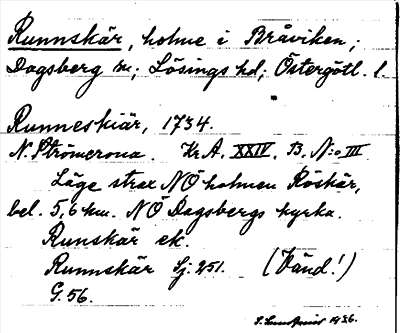 Runnskär, holme i Bråviken;
Dagsberg sn; Lösings hd; Östergötl. l.
Runneskiär, 1734.
N. Strömcrona. Kr.A. XXIV. B. N:o III
Läge strax NÖ holmen Röskär,
bel. 5,6 km. NÖ Dagsbergs kyrka.
Runskär ek.
Runnskär Sj. 251. (Vänd!)
G. 56.
1936.